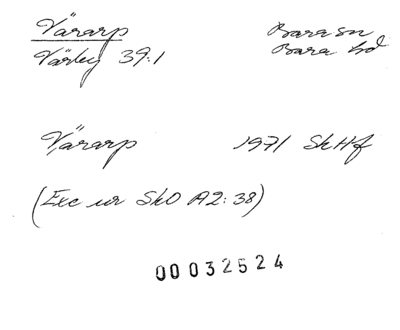 Värarp Bara sn
Värby 39:1 Bara hd
Värarp 1971 SkHf
(Exc ur SkO A2:38)
00032524